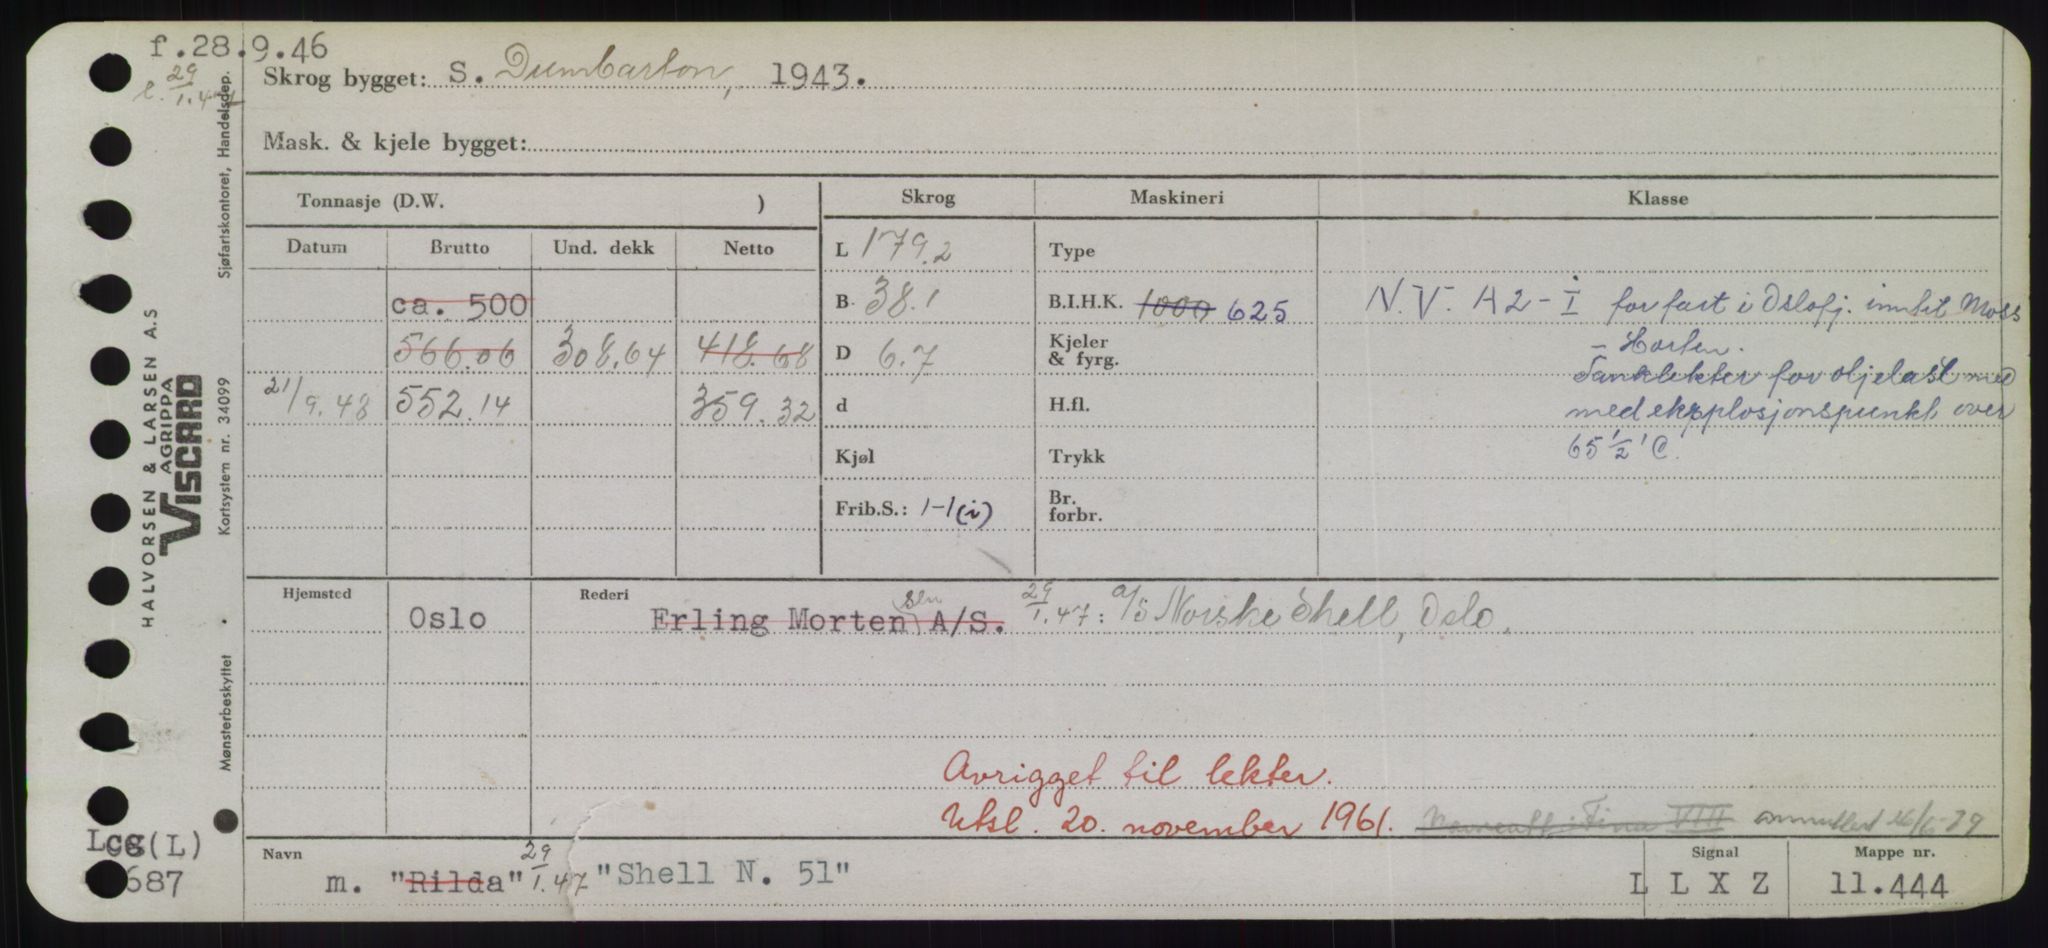 f.28.9.46
29/1.47
Skrog bygget: S. Dumbarton, 1943.
Mask. & kjele bygget:
Tonnasje (D.W. )
Skrog
Maskineri
Klasse
Datum Brutto Und. dekk Netto
L 179.2
Type
ca. 500
B. 38.1
B.I.H.K. 1000 625
N.V. A2-I i for fart i Oslofj. inntil Moss
- Horten.
566.06 308.64 418.68
D 6.7
Kjeler
& fyrg.
Tanklekter for oljelast med
21/9.48 552.14 359.32
d
H.fl.
med eksplosjonspunkt over
65 1/2° C.
Kjøl
Trykk
Frib.S.: 1-1(i)
Br.
forbr.
Hjemsted
Oslo
Rederi
Erling Mortensen A/S. 29/1.47: a/s Norske Shell, Oslo.
Avrigget til lekter.
Utsl. 20. november 1961. Navneatt: Fina VIII annullert
Navn
m. "Rilda" 29/1.47 "Shell N. 51"
Signal
L L X Z
Mappe nr.
11.444
Lcg(L)
687
HALVORSEN & LARSEN A.S
AGRIPPA
VISCARD
Mønsterbeskyttet • Kortsystem nr. 34099 Sjøfartskontoret, Handelsdep.